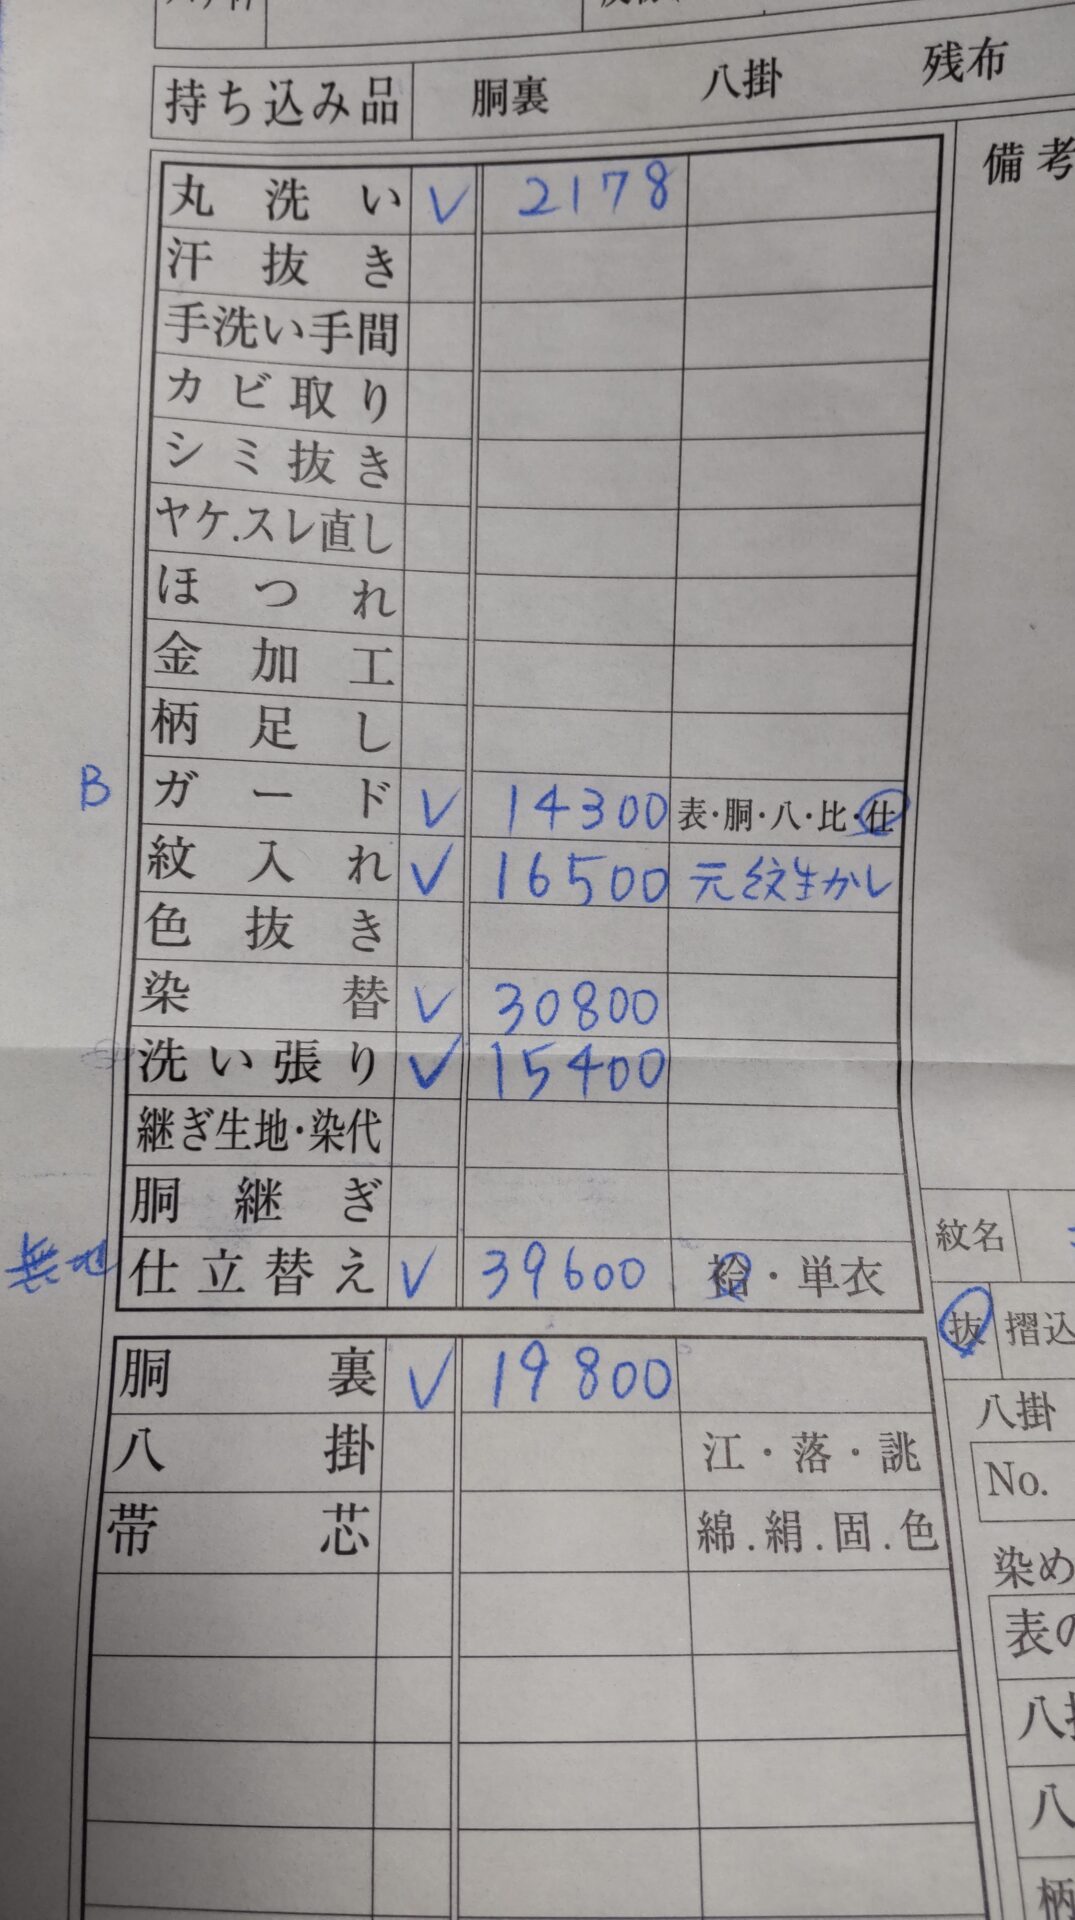 持ち込み品 胴裏 八掛 残布
備考
丸洗い ✓ 2178
汗抜き
手洗い手間
カビ取り
シミ抜き
ヤケ.スレ直し
ほつれ
金加工
柄足し
B ガード ✓ 14300 表・胴・八・比・仕
紋入れ ✓ 16500 元紋生かし
色抜き
染替 ✓ 30800
洗い張り ✓ 15400
継ぎ生地・染代
胴継ぎ
紋名
無地 仕立替え ✓ 39600 袷・単衣
抜 摺込
胴裏 ✓ 19800
八掛
八掛 江・落・誂
No.
帯芯 綿.絹.固.色
染め
表の
八掛
八
柄